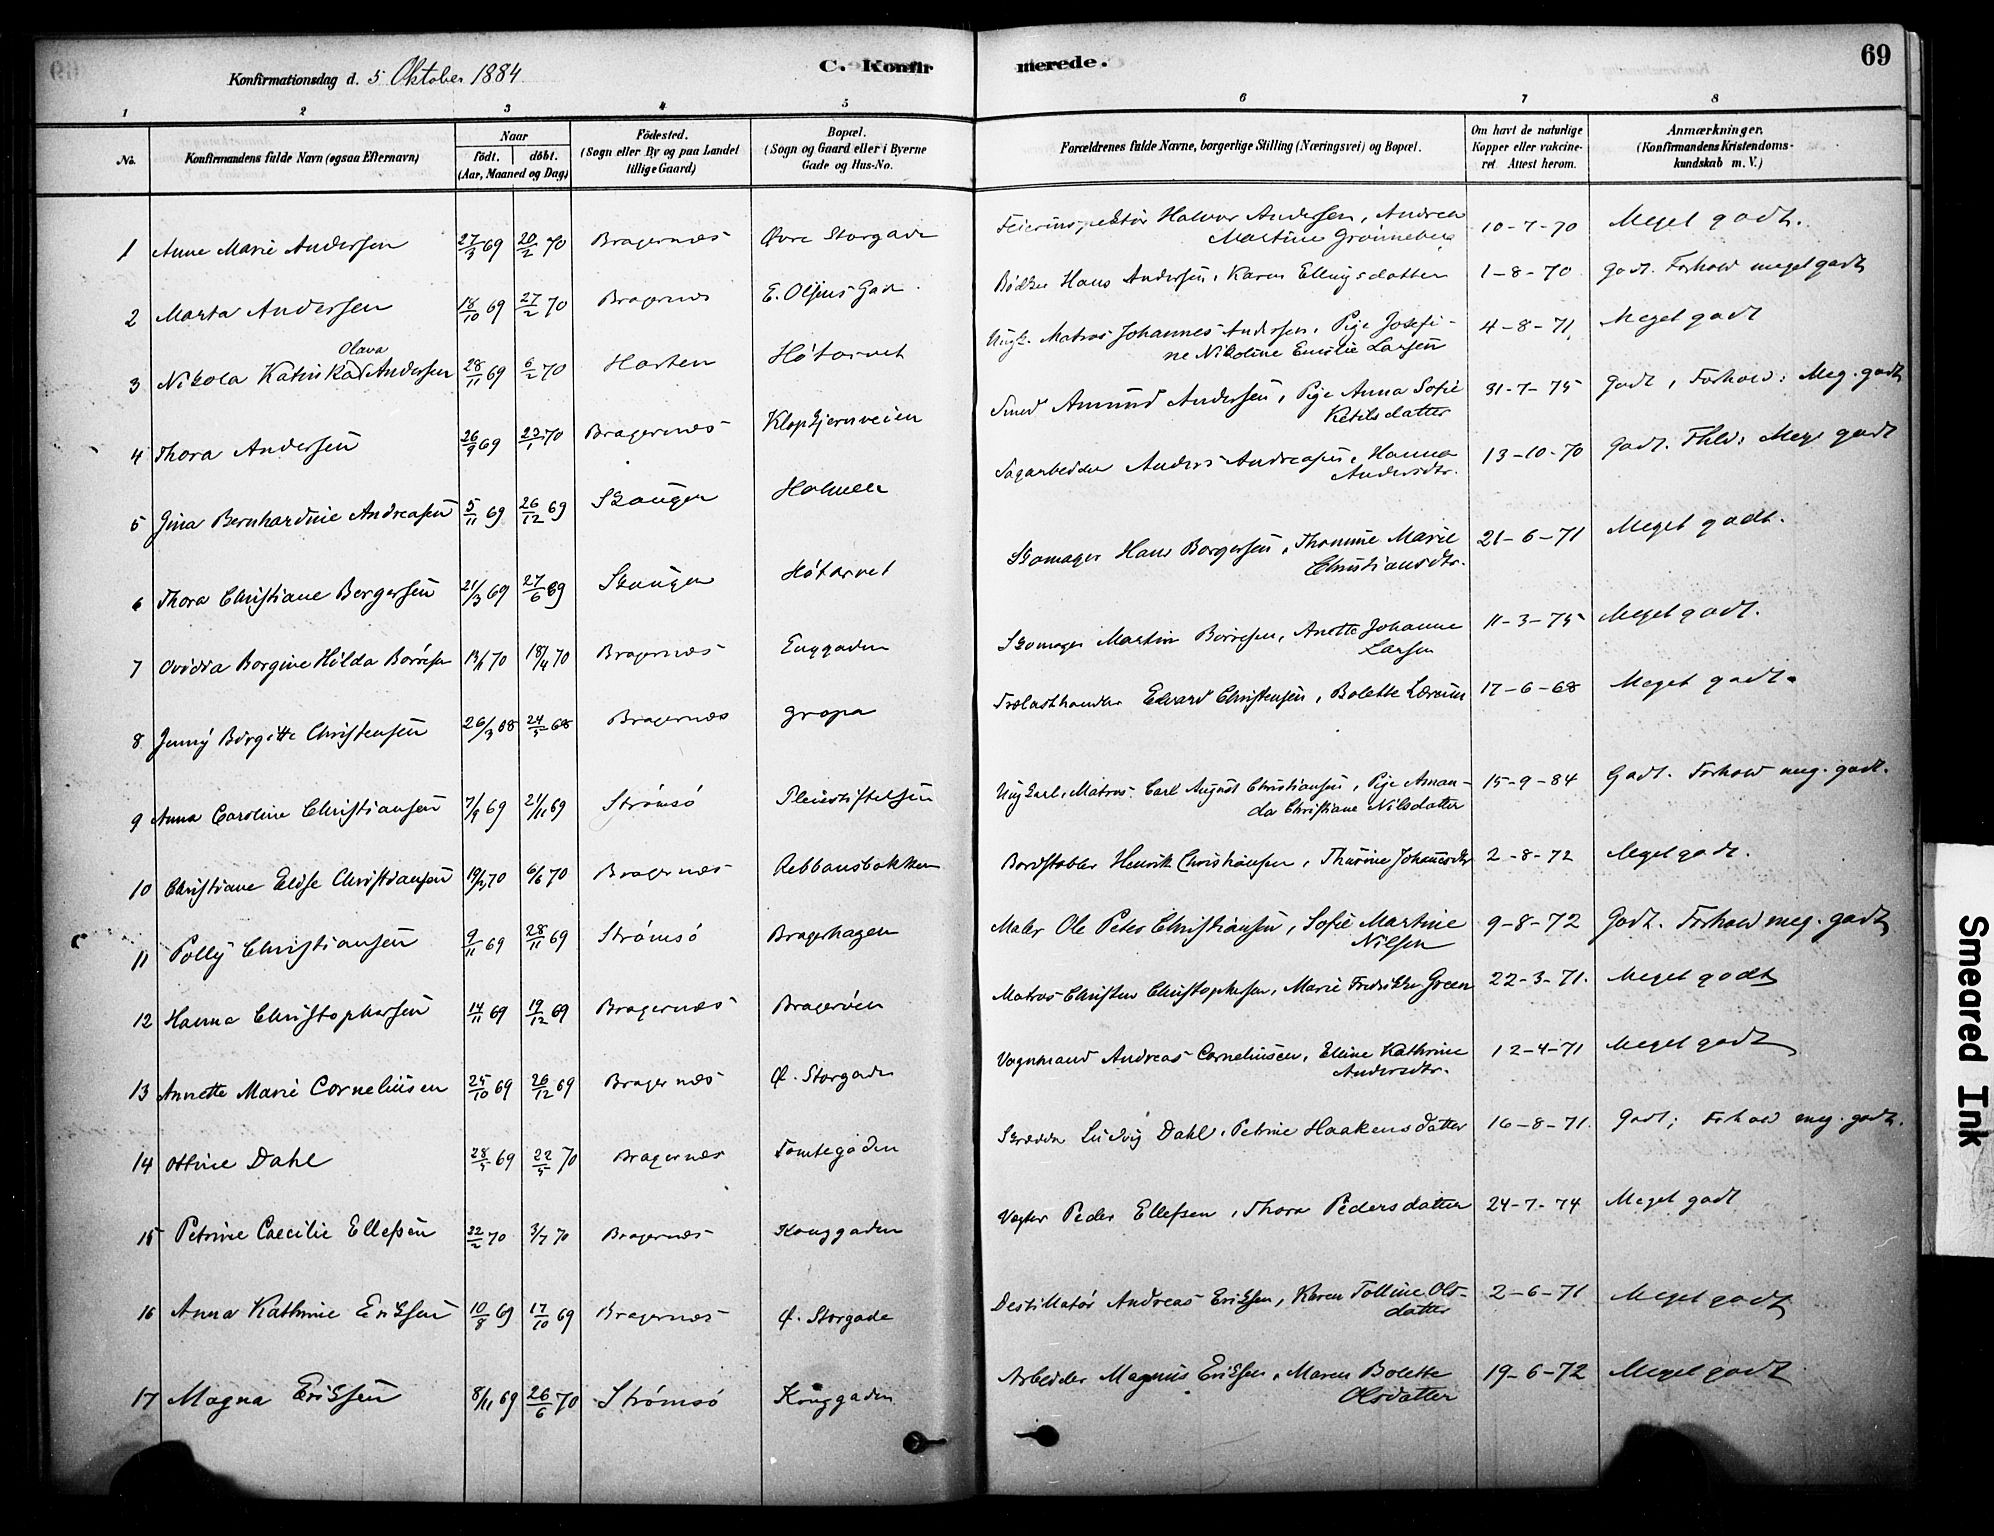 Konfirmationsdag d. 5 Oktober 1884.
C. Konfirmerede.
69
1 2 3 4 5 6 7 8
No. Konfirmandens fulde Navn (ogsaa Efternavn) Naar födt. döbt. (Aar, Maaned og Dag) Födested. (Sogn eller By og paa Landet tillige Gaard) Bopæl. (Sogn og Gaard eller i Byerne Gade og Hus-No. Forældrenes fulde Navne, borgerlige Stilling (Næringsvei) og Bopæl. Om havt de naturlige Kopper eller vakcineret Attest herom. Anmærkninger. (Konfirmandens Kristendomskundskab m. V.)
1 Anne Marie Andersen 27/3 69 20/2 70 Bragernæs Øvre Storgade Feierinspektör Halvor Andersen, Andrea Martine Grønneberg 10-7-70 Meget godt.
2 Marta Andersen 18/10 69 27/2 70 Bragernæs E. Olsens Gade Bödker Hans Andersen, Karen Ellingsdatter 1-8-70 Godt. Forhold meget godt
3 Nikola Katinka Olava Andersen 28/11 69 6/2 70 Horten Høtorvet Ungk. Matros Johannes Andersen, Pige Josefine Nikoline Emilie Larsen 4-8-71 Meget godt
4 Thora Andersen 26/9 69 23/1 70 Bragernæs Klopkjernveien Smed Amund Andersen, Pige Anna Sofie Ketilsdatter 31-7-75 Godt, Forhold: Meg. godt
5 Gina Bernhardine Andreasen 5/11 69 26/12 69 Skouger Holmen Sagarbeider Anders Andreasen, Hanna Andersdtr. 13-10-70 Godt. Fhld: Meget godt
6 Thora Christiane Borgersen 21/3 69 27/6 69 Skouger Høtorvet Skomager Hans Borgersen, Thomine Marie Christiansdtr. 21-6-71 Meget godt.
7 Ovidia Borgine Hilda Borresen 13/1 70 18/4 70 Bragernæs Enggaden Skomager Martin Borresen, Anette Johanne Larsen 11-3-75 Meget godt.
8 Jenny Birgitte Christensen 26/3 68 24/5 68 Bragernæs Gropa Trælasthandler Edvard Christensen, Bolette Lærum 17-6-68 Meget godt.
9 Anna Caroline Christiansen 7/9 69 21/11 69 Strömsö Pleiestiftelsen Ungkarl, Matros Carl August Christiansen, Pige Amanda Christiane Nilsdatter 15-9-84 Godt. Forhold meg. godt.
10 Christiane Elise Christiansen 19/2 70 6/6 70 Bragernæs Rebbansbakken Bordstabler Henrik Christiansen, Thorine Johannesdtr 2-8-72 Meget godt.
11 Polly Christiansen 9/11 69 28/11 69 Strömsö Bragerhagen Maler Ole Peter Christiansen, Sofie Martine Nilsen 9-8-72 Godt. Forhold meg. godt
12 Hanna Christophersen 14/11 69 19/12 69 Bragernæs Bragerøen Matros Christen Christophersen, Marie Fredrikke Green 22-3-71. Meget godt
13 Annette Marie Corneliusen 25/10 69 26/12 69 Bragernæs Ø. Storgade Vognmand Andreas Corneliusen, Elline Kathrine Andersdtr. 12-4-71 Meget godt
14 Ottine Dahl 28/5 69 22/5 70 Bragernæs Tomtegaden Skrædder Ludvig Dahl, Petrine Haakensdatter 16-8-71. Godt; Forhold meg. godt.
15 Petrine Caecilie Ellefsen 22/2 70 3/7 70 Bragernæs Konggaden Vægter Peder Ellefsen, Thora Pedersdatter 24-7-74 Meget godt
16 Anna Kathrine Eriksen 10/8 69 17/10 69 Bragernæs Ø. Storgade Destillatør Andreas Eriksen, Karen Tolline Olsdatter 2-6-71 Meget godt
17 Magna Eriksen 8/11 69 26/6 70 Strömsö Konggaden Arbeider Magnus Eriksen, Maren Bolette Olsdatter 19-6-72 Meget godt
Smeared Ink